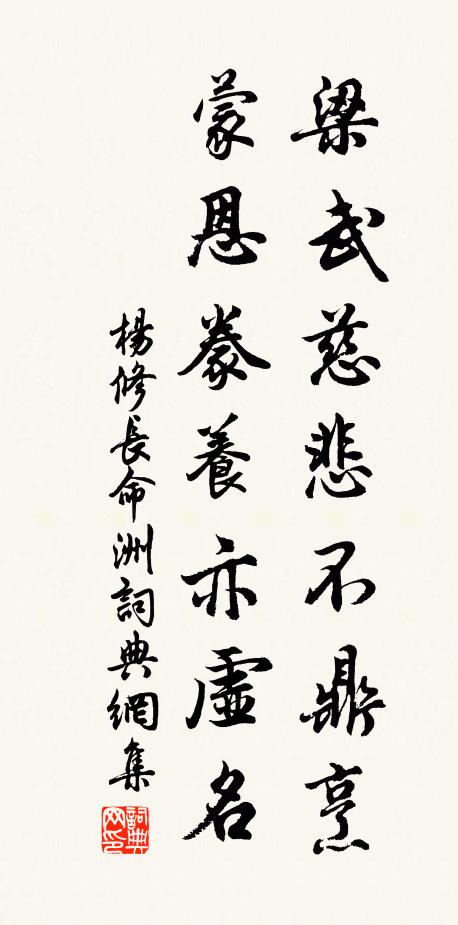 梁武慈悲不鼎烹
蒙恩豢養亦虛名
楊修長命洲詞典網集
詞典网印